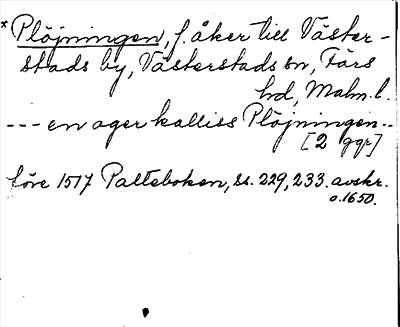 *Plöjningen, f. åker till Väster-
stads by, Västerstads sn, Färs
hd, Malm. l.
--- en ager kalliss Plöjningen..
[2 ggr]
före 1517 Palteboken, ss. 229, 233. avskr.
o. 1650.